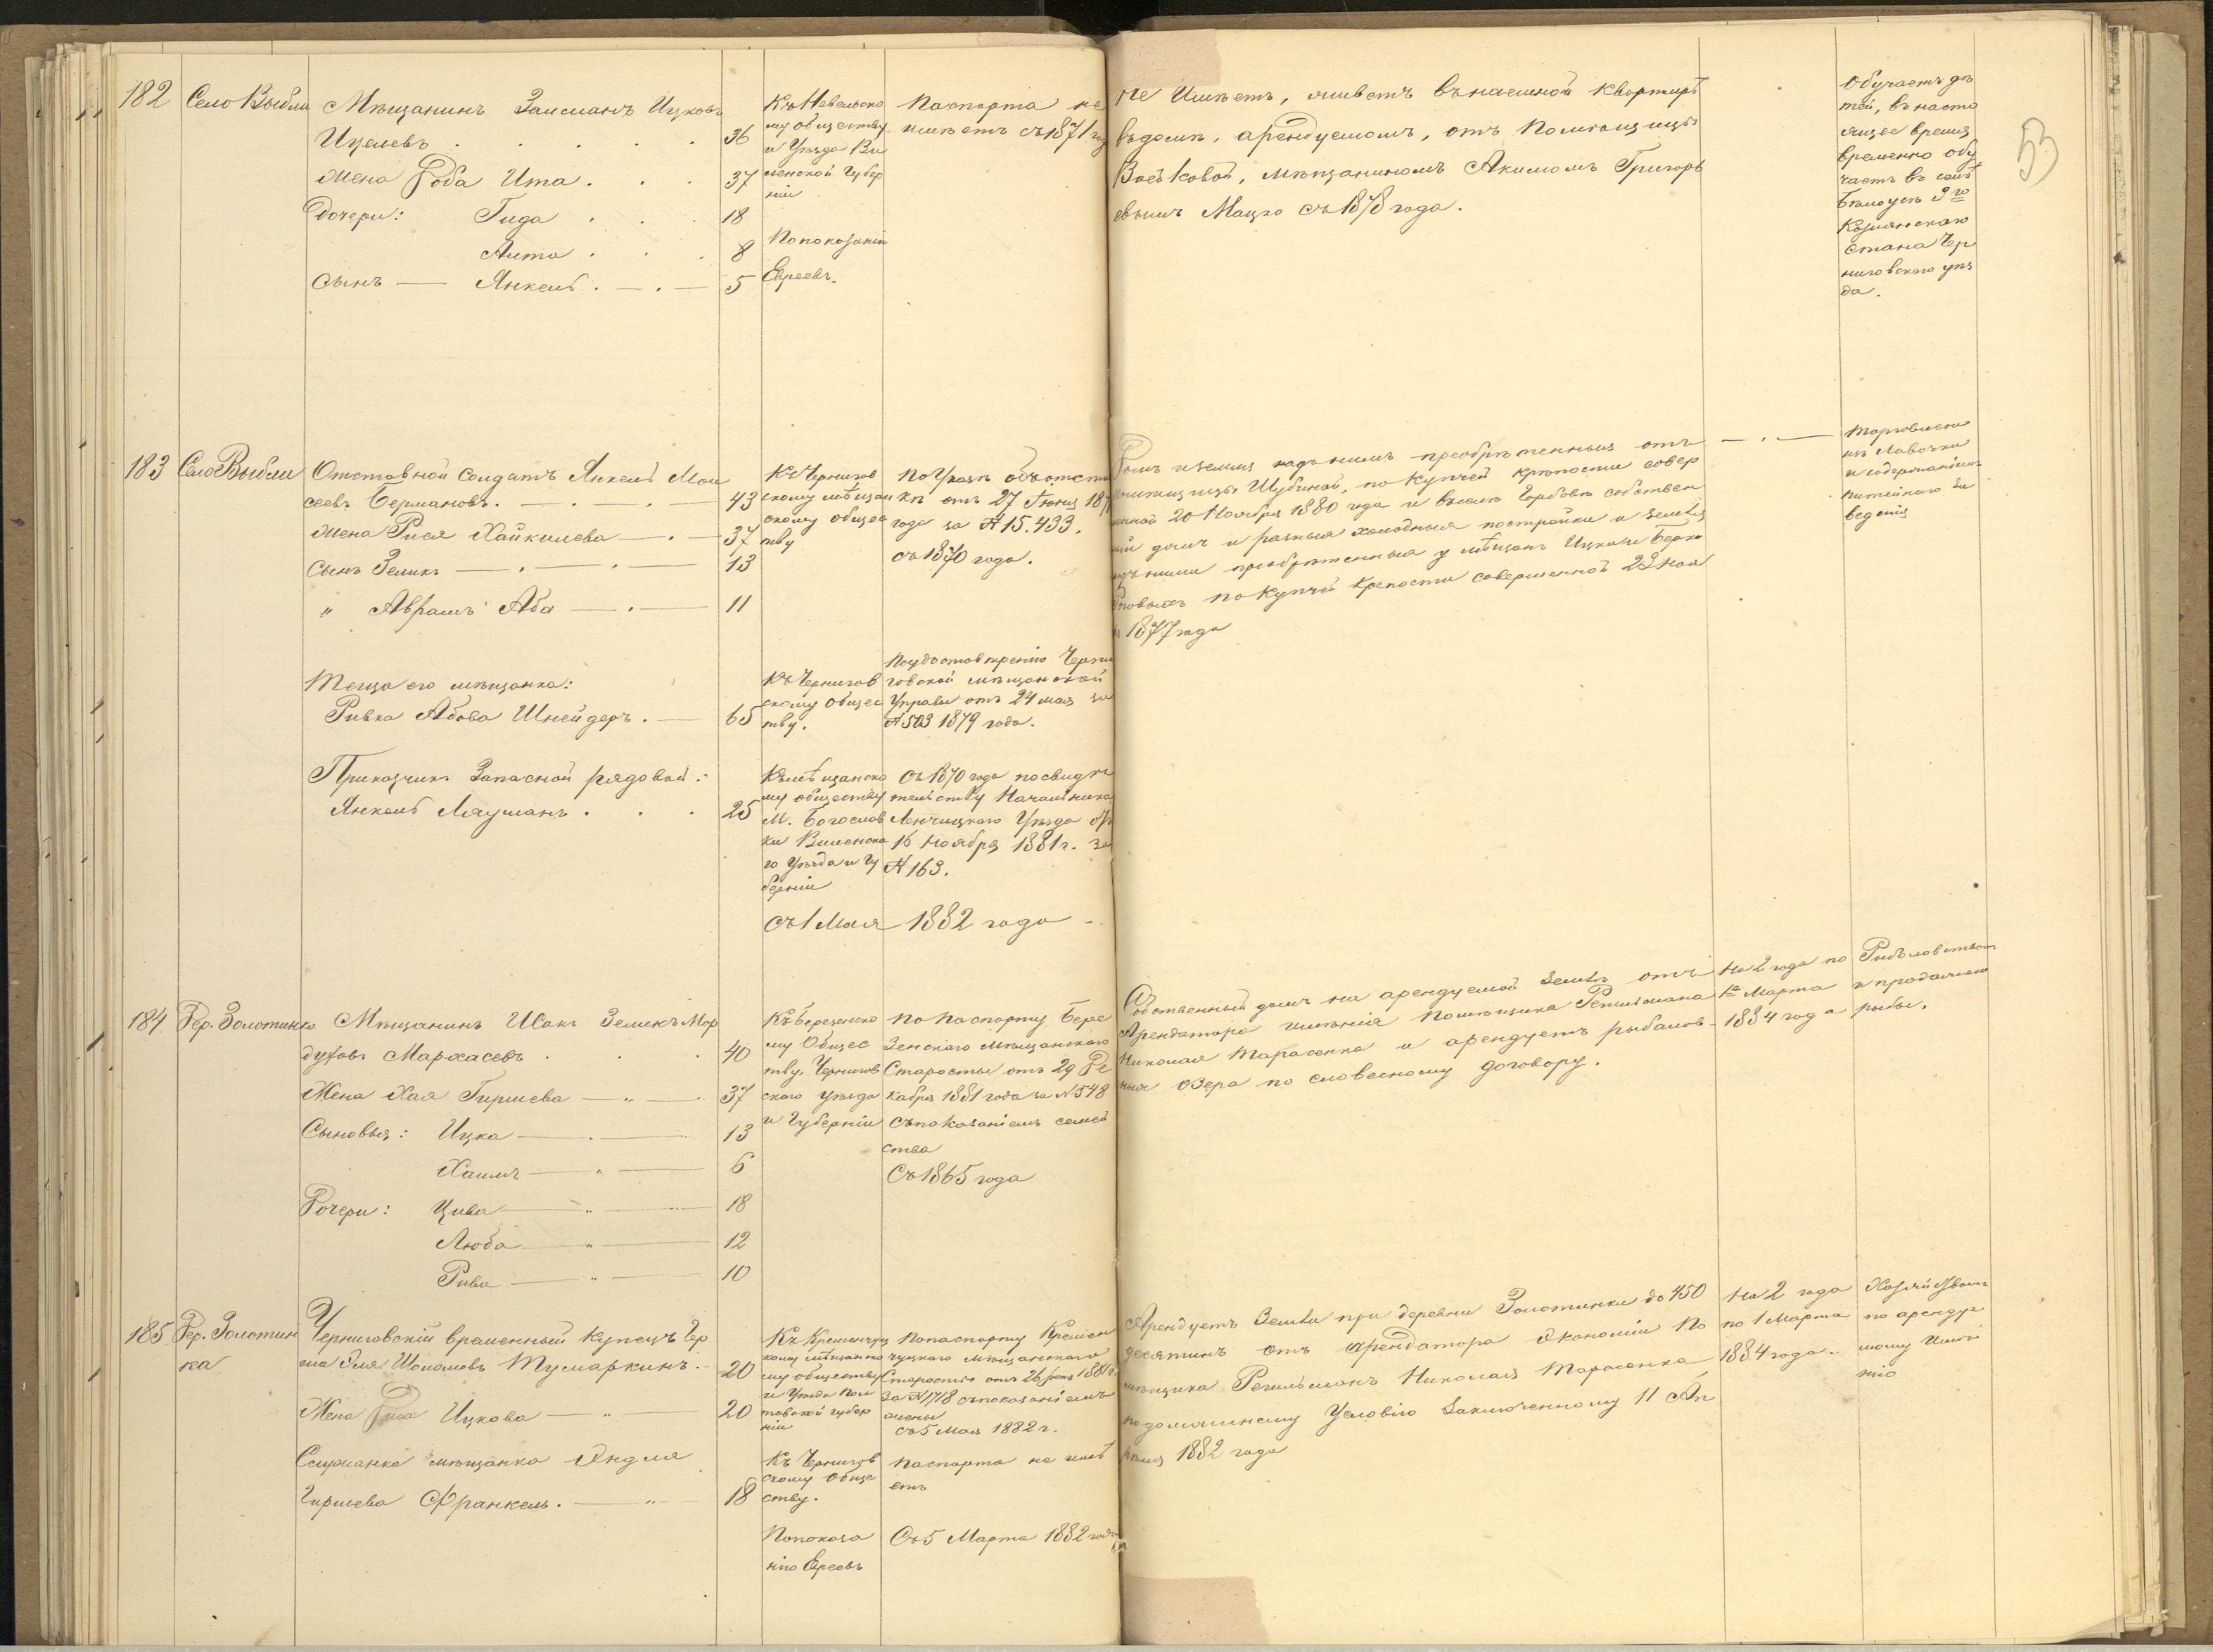 53
182 Село Выбли
Мѣщанинъ Залманъ Ицковъ
36
Жена Роба Ита . . . 37
Дочери: Гида . . . 18
Анта . . . 8
сынъ — Янкель . — . — 5
Къ
му обществу
и Уѣзда Ви
ленской Губер
ніи
По показанію
Евреевъ.
Паспорта не
имѣетъ съ 1871 года
не имѣетъ, живетъ въ наемной квартирѣ
въ домѣ, арендуемомъ, отъ Помѣщицы
мѣщаниномъ Акимомъ Григорь
евымъ Мацко съ 1878 года.
Обучаетъ дѣ
тей, въ насто
ящее время
временно обу
чаетъ въ селѣ
Бѣлоусѣ 3го
Козлянскаго
стана Чер
ниговскаго уѣз
да.
183 Село Выбли
Отставной Солдатъ Янкель Мов
сеевъ Бермановъ. — . — . — 43
Жена Рися Хайкилева — . — 37
Сынъ Зеликъ — . — . — 13
" Аврамъ Аба — . — 11
Къ Чернигов
скому мѣщан
скому общес
тву
По Указу объ отстав
кѣ отъ 27 Іюня 187
года за № 15.433.
съ 1870 года.
Домъ и земля подъ нимъ преобрѣтенныя отъ
Шубиной, по купчей крѣпости совер
шенной 20 Ноября 1880 года и собствен
ный домъ и разныя холодныя постройки и земля
подъ ними преобрѣтенныя у мѣщанъ Ицка и Берка
по купчей крепости совершенной 22 Ноя
1877 года
— . —
Торговлею
изъ Лавочки
и содержаніемъ
питейнаго за
веденія
Теща его мѣщанка:
Ривка Абова Шнейдеръ . — 65
Къ Чернигов
скому общес
тву.
По удостовѣренію Черни
говской мѣщанской
Управы отъ 24 мая за
№ 503 1879 года.
Приказчикъ Запасной рядовой:
Янкель Лауманъ . . . 25
Къ мѣщанско
му обществу
М. Богослов
ки Виленска
го Уѣзда и Гу
берніи
Съ 1870 года по свидѣ
тельству Начальника
Ленчицкаго Уѣзда отъ
16 Ноября 1881 г. за
№ 163.
съ 1 Мая 1882 года —
184. Дер. Золотинка
Мѣщанинъ Исакъ Зеликъ Мор
духовъ Мархасевъ . . . 40
Жена Хая Гиршева — " — 37
Сыновья: Ицка — . — 13
Хаимъ — " — 6
Дочери: Цива — " — 18
Люба — " — 12
Рива — " — 10
Къ Березанско
му Общес
тву, Чернигов
скаго уѣзда
и Губерніи
По паспорту Бере
занскаго Мѣщанскаго
Старосты отъ 29 Де
кабря 1881 года за № 548
съ показаніемъ семей
ства
Съ 1865 года
Собственный домъ на арендуемой Землѣ отъ
Арендатора имѣнія помѣщика Рашильмана
Николая Тарасенка и арендуетъ рыбалов-
ныя озера по словесному договору.
На 2 года по
1е Марта
1884 года
Рыболовствомъ
и продажею
рыбы.
185 Дер. Золотин
ка
Черниговскій временный купецъ Гер
ша Эля Шоломовъ Тумаркинъ. — 20
Жена Рита Ицкова — " — 20
Служанка мѣщанка Эидля
Гиршева Франкель. — " — 18
Къ Кременчуг
скому мѣщанско
му обществу
и Уѣзда Пол
тавской губер
ніи
По паспорту Кремен
чугскаго мѣщанскаго
Старосты отъ 26 1881 г.
за № 1718 съ показаніемъ
жены
съ 5 Мая 1882 г.
Къ Чернигов
скому обще
ству.
Паспорта не имѣ
етъ
По показа
нію Евреевъ
Съ 5 Марта 1882 года
Арендуетъ Земли при деревни Золотинки до 450
десятинъ отъ арендатора Экономіи по
мѣщика Рашильманъ Николая Тарасенка
по домашнему Условію Заключенному 11 Ап
рѣля 1882 года
На 2 года
по 1 Марта
1884 года.
Хозяйствомъ
по арендуе
мому имѣ
нію